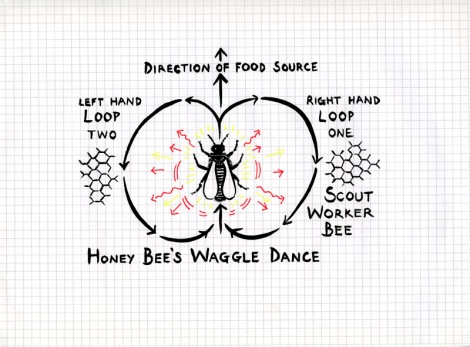 DIRECTION OF FOOD SOURCE
LEFT HAND
LOOP
TWO
RIGHT HAND
LOOP
ONE
SCOUT
WORKER
BEE
HONEY BEE'S WAGGLE DANCE